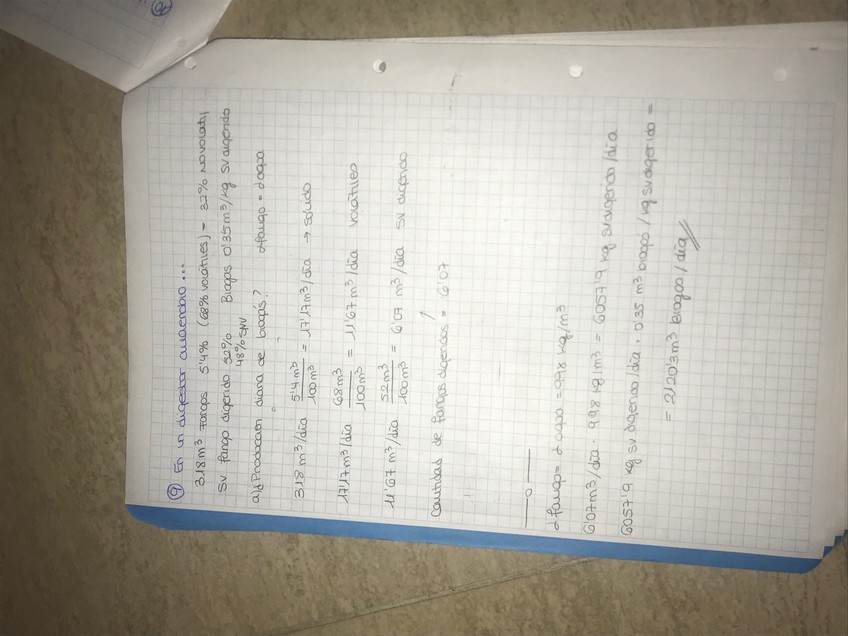 ⑨ En un digestor anaerobio ...
318 m³ Fangos 5'4% (68% volátiles) - 32% No volátil
SV. fango digerido 52% Biogas 0'35 m³/kg SV digerido
48% SNV
a) ¿Producción diaria de biogás? dfango = dagua
318 m³/día 5'4 m³/100 m³ = 17'17 m³/día → sólido
17'17 m³/día 68 m³/100 m³ = 11'67 m³/día volátiles
11'67 m³/día 52 m³/100 m³ = 6'07 m³/día SV digerido
Cantidad de fangos digeridos = 6'07
—o—
dfango = dagua = 998 kg/m³
6'07 m³/día · 998 kg/m³ = 6057'9 kg SV digerido/día
6057'9 kg SV digerido/día · 0'35 m³ biogás/kg SV digerido =
= 2120'3 m³ biogás/día